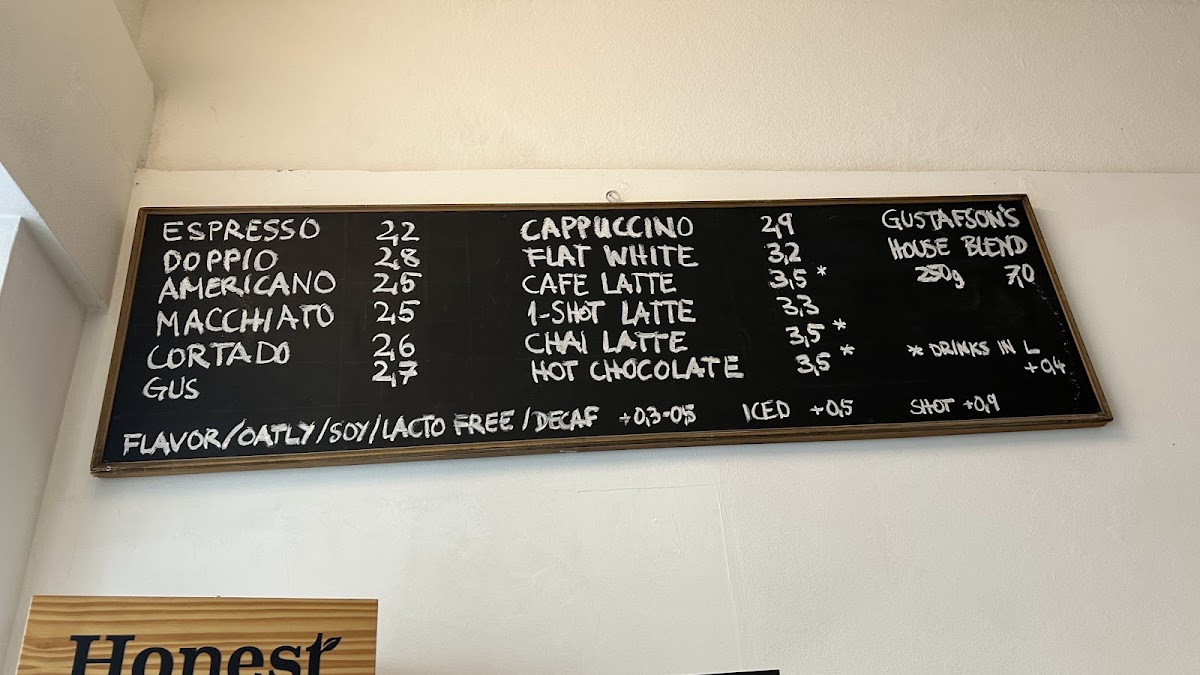 ESPRESSO 2,2
DOPPIO 2,8
AMERICANO 2,5
MACCHIATO 2,5
CORTADO 2,6
GUS 2,7
CAPPUCCINO 2,9
FLAT WHITE 3,2
CAFE LATTE 3,5 *
1-SHOT LATTE 3,3
CHAI LATTE 3,5 *
HOT CHOCOLATE 3,5 *
GUSTAFSON'S
HOUSE BLEND
250g 7,0
* DRINKS IN L
+0,4
FLAVOR/OATLY/SOY/LACTO FREE/DECAF +0,3-0,5 ICED +0,5 SHOT +0,9
Honest